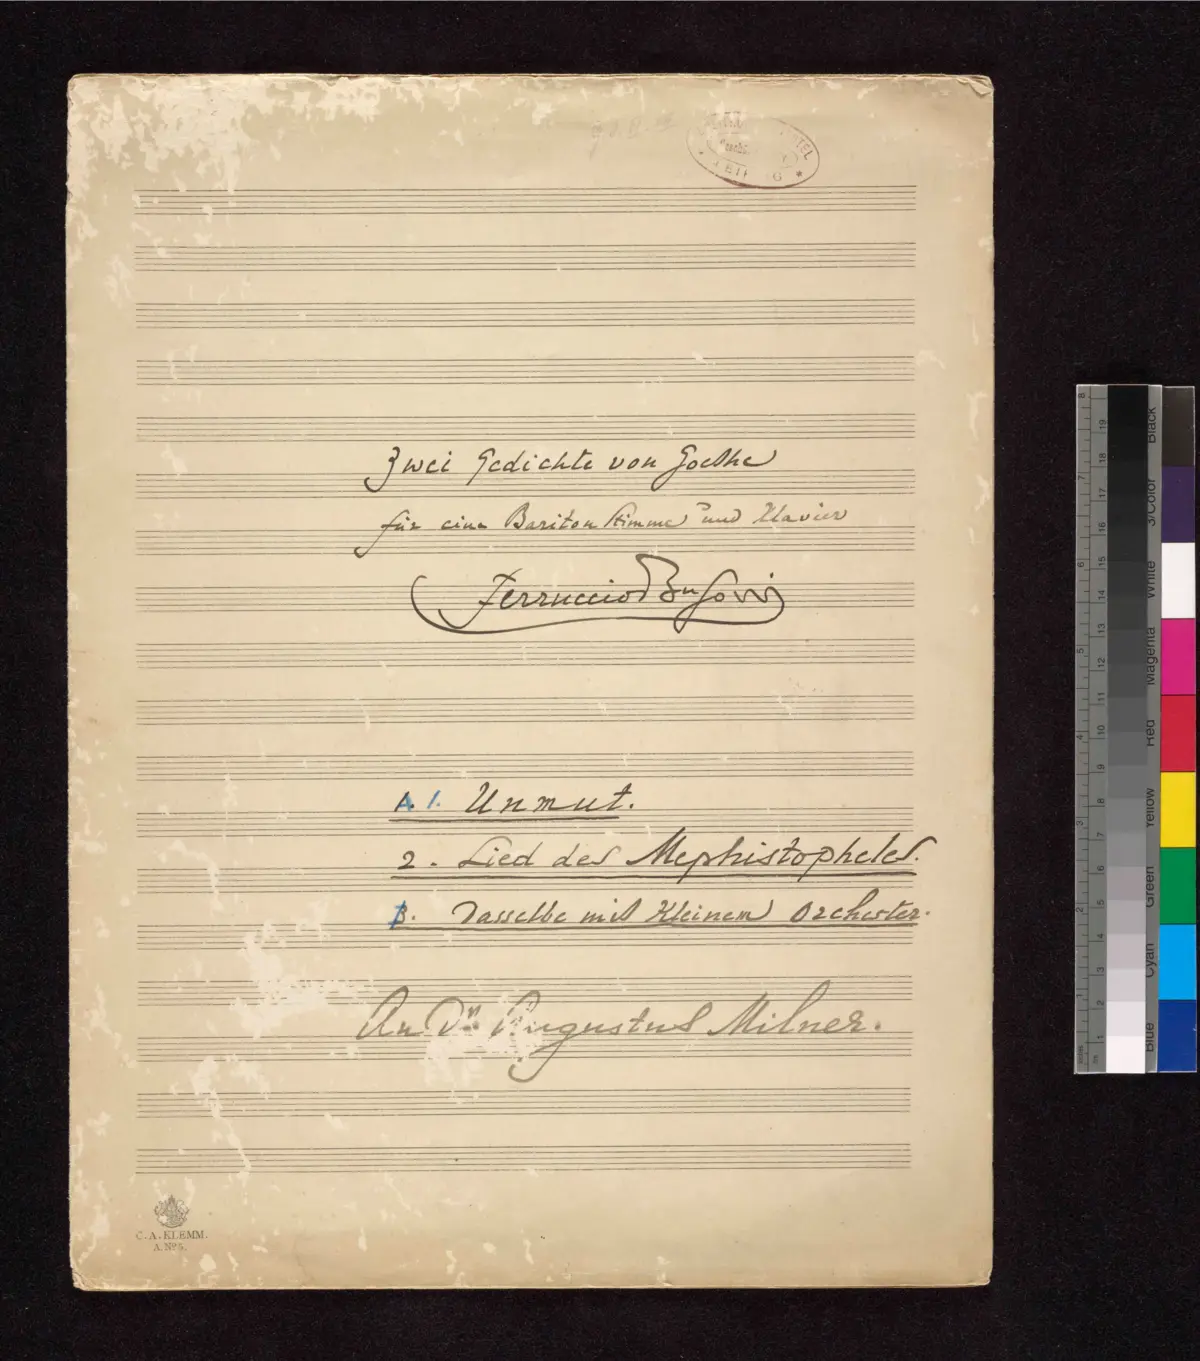 TEL
LEI G *
Zwei Gedichte von Goethe
für eine Bariton Stimme und Klavier
Ferruccio Busoni
A. 1. Unmut.
2. Lied des Mephistopheles.
B. Dasselbe mit Kleinem Orchester.
An Dr. Augustus Milner.
C.A.KLEMM.
A.Nº5.
8 7 6 5 4 3 2 1
19 18 17 16 15 14 13 12 11 10 9 8 7 6 5 4 3 2 1
Black
3/Color
White
Magenta
Red
Yellow
Green
Cyan
Blue